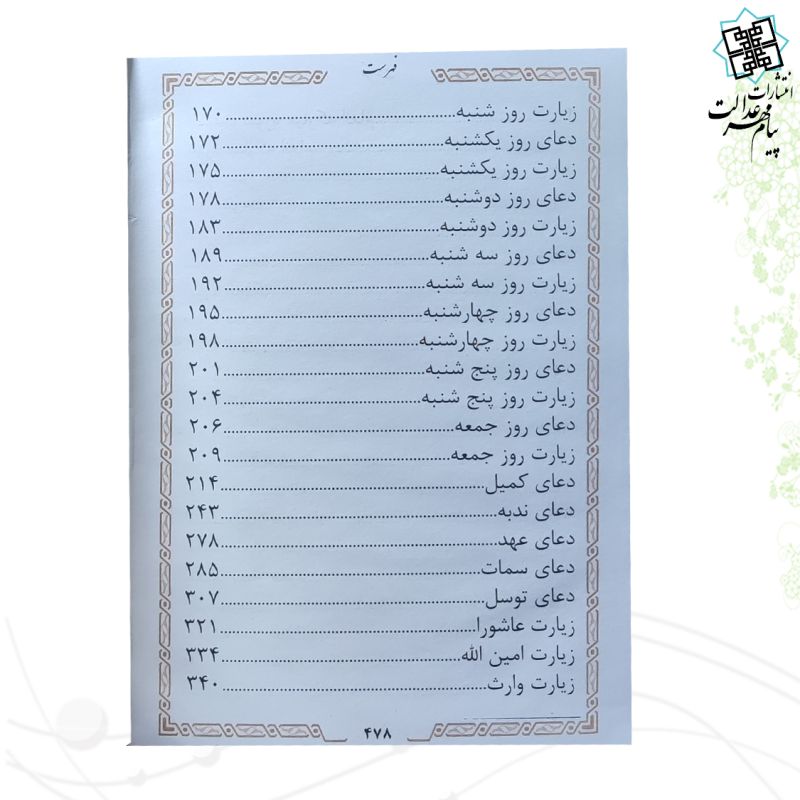 انتشارات
پیام مهر عدالت
فهرست
زیارت روز شنبه..........۱۷۰
دعای روز یکشنبه..........۱۷۲
زیارت روز یکشنبه..........۱۷۵
دعای روز دوشنبه..........۱۷۸
زیارت روز دوشنبه..........۱۸۳
دعای روز سه شنبه..........۱۸۹
زیارت روز سه شنبه..........۱۹۲
دعای روز چهارشنبه..........۱۹۵
زیارت روز چهارشنبه..........۱۹۸
دعای روز پنج شنبه..........۲۰۱
زیارت روز پنج شنبه..........۲۰۴
دعای روز جمعه..........۲۰۶
زیارت روز جمعه..........۲۰۹
دعای کمیل..........۲۱۴
دعای ندبه..........۲۴۳
دعای عهد..........۲۷۸
دعای سمات..........۲۸۵
دعای توسل..........۳۰۷
زیارت عاشورا..........۳۲۱
زیارت امین الله..........۳۳۴
زیارت وارث..........۳۴۰
۴۷۸